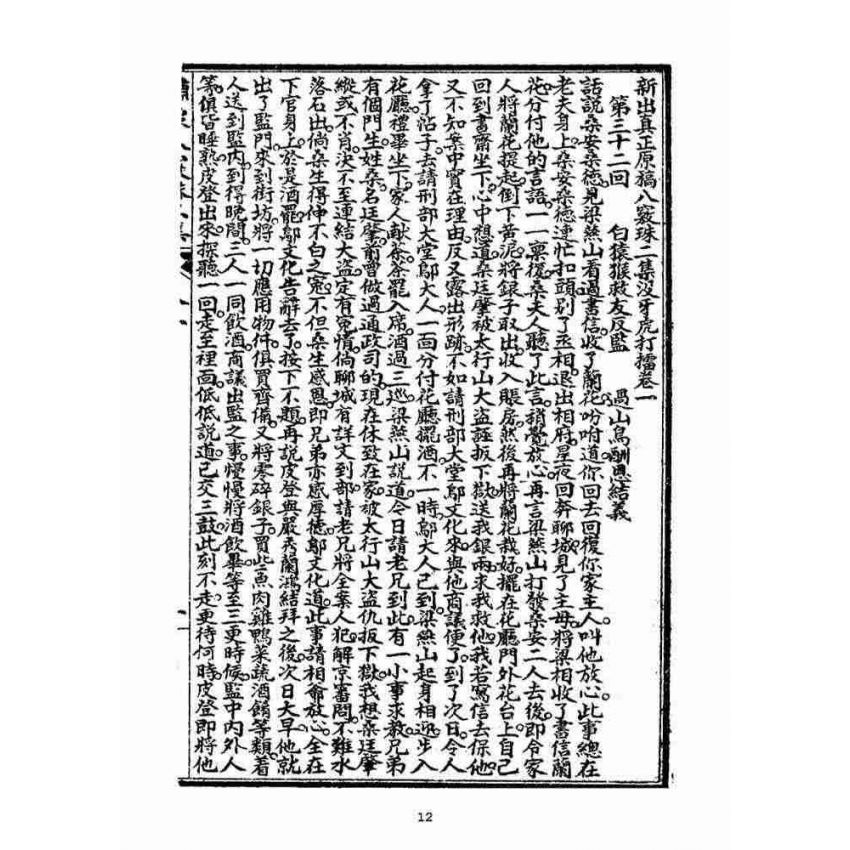 新出真正原稿八竅珠二集沒牙虎打擂卷一
第三十二回　白猿猴救友反監　愚山鳥酬恩結義
話說桑安桑德見梁燕山看過書信收了蘭花吩咐道你回去回復你家主人。叫他放心。此事總在
老夫身上。桑安桑德連忙扣頭。別了丞相。退出相府。星夜回奔聊城。見了主母。將梁相收了書信蘭
花分付他的言語。一一稟復。桑夫人聽了此言。稍覺放心。再言梁燕山打發桑安二人去後。即令家
人將蘭花提起。倒下黃泥。將銀子取出。收入賬房。然後再將蘭花栽好。擺在花廳門外花台上。自己
回到書齋坐下。心中想道。桑廷肇被太行山大盜誣扳下獄。送我銀兩。求我救他。我若寫信去保他。
又不知案中實在理由。反又露出形跡。不如請刑部大堂鄔文化來與他商議便了。到了次日。令人
拿了帖子。去請刑部大堂鄔大人。一面分付花廳擺酒。不一時。鄔大人已到。梁燕山起身相迎。步入
花廳。禮畢坐下。家人獻茶。茶罷入席。酒過三巡。梁燕山說道。今日請老兄到此。有一小事求教。兄弟
有個門生。姓桑。名廷肇。前曾做過通政司的。現在休致在家。被太行山大盜仇扳下獄。我想桑廷肇
縱或不肖。決不至連結大盜。定有冤情。倘聊城有詳文到部。請老兄將全案人犯。解京審問。不難水
落石出。倘桑生得伸不白之冤。不但桑生感恩。即兄弟亦感厚德。鄔文化道。此事請相爺放心。全在
下官身上。於是酒罷。鄔文化告辭去了。按下不題。再說皮登與嚴秀蘭鴻結拜之後。次日大早。他就
出了監門。來到街坊。將一切應用物件。俱買齊備。又將零碎銀子。買些魚肉雞鴨菜蔬酒餚等類。著
人送到監內。到得晚間。三人一同飲酒。商議出監之事。慢慢將酒飲畢。等至三更時候。監中內外人
等俱皆睡熟。皮登出來。探聽一回。走至裡面。低低說道。已交三鼓。此刻不走。更待何時。皮登即將他
12